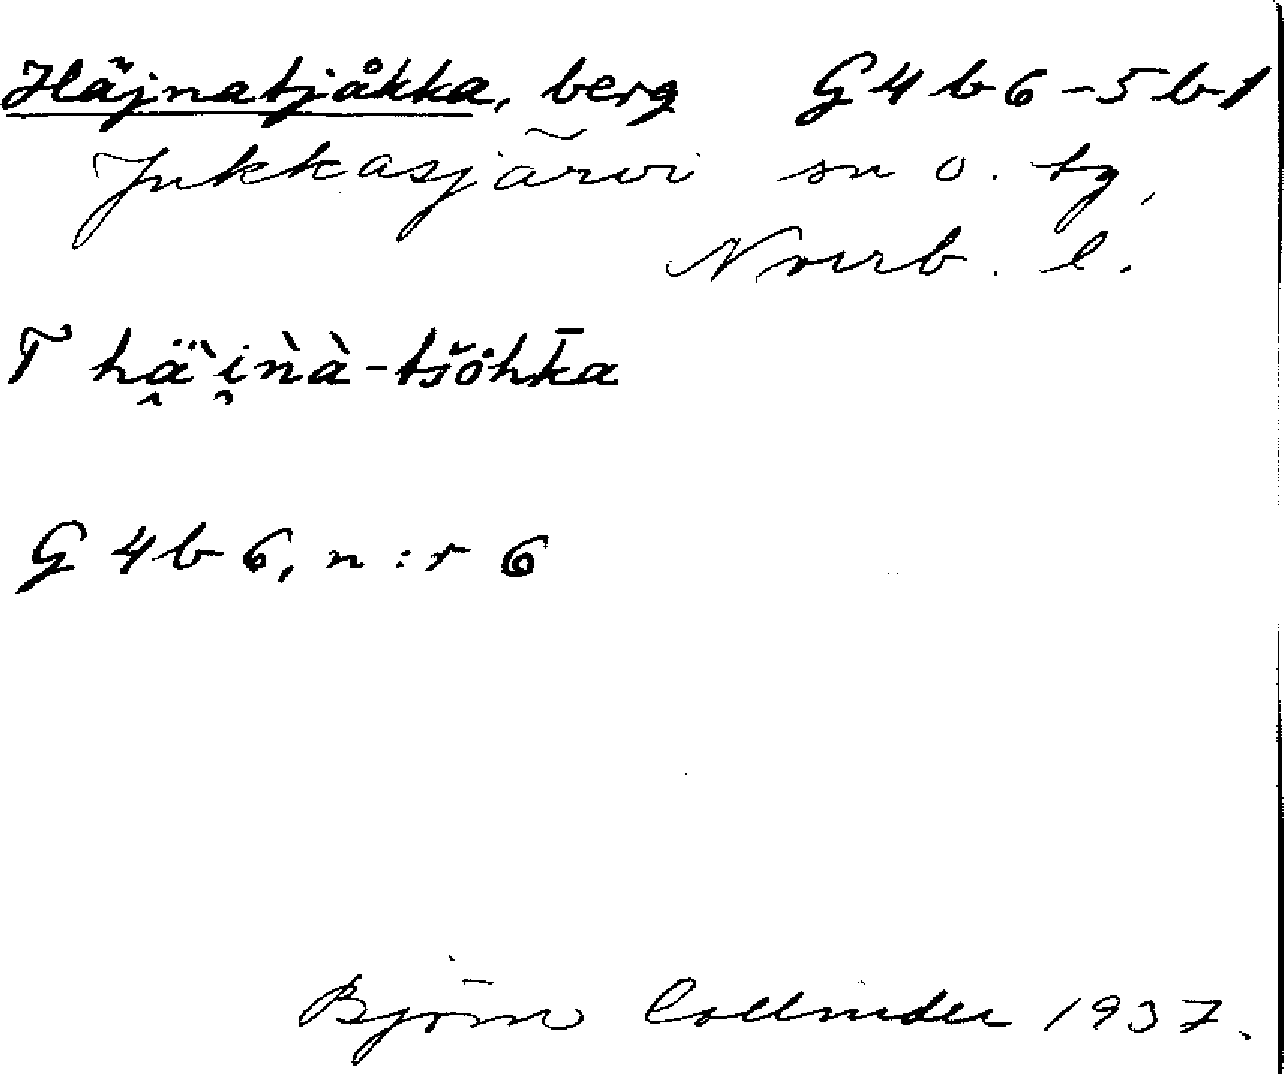 Häjnatjåkka, berg G4b6-5b1
Jukkasjärvi sn o. tg,
Norrb. l.
T hä̭̀i̯ǹà-tšåhk̄a
G4b6, n:r 6
Björn Collinder 1937.